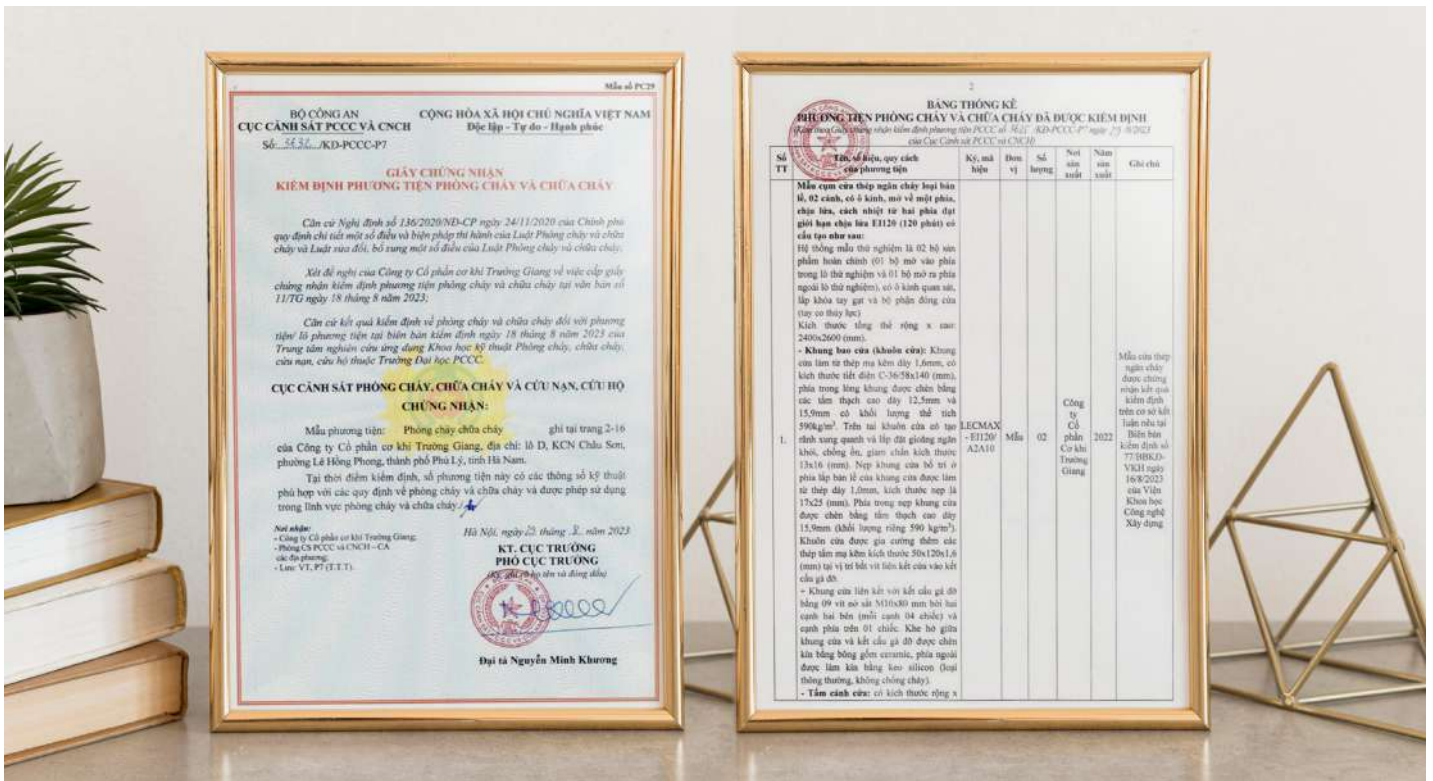 Mẫu số PC29
BỘ CÔNG AN
CỤC CẢNH SÁT PCCC VÀ CNCH
CỘNG HÒA XÃ HỘI CHỦ NGHĨA VIỆT NAM
Độc lập - Tự do - Hạnh phúc
Số: /KĐ-PCCC-P7
GIẤY CHỨNG NHẬN
KIỂM ĐỊNH PHƯƠNG TIỆN PHÒNG CHÁY VÀ CHỮA CHÁY
Căn cứ Nghị định số 136/2020/NĐ-CP ngày 24/11/2020 của Chính phủ
quy định chi tiết một số điều và biện pháp thi hành của Luật Phòng cháy và chữa
cháy và Luật sửa đổi, bổ sung một số điều của Luật Phòng cháy và chữa cháy;
Xét đề nghị của Công ty Cổ phần cơ khí Trường Giang về việc cấp giấy
chứng nhận kiểm định phương tiện phòng cháy và chữa cháy tại văn bản số
11/TG ngày 18 tháng 8 năm 2023;
Căn cứ kết quả kiểm định về phòng cháy và chữa cháy đối với phương
tiện/ lô phương tiện tại biên bản kiểm định ngày 18 tháng 8 năm 2023 của
Trung tâm nghiên cứu ứng dụng Khoa học kỹ thuật Phòng cháy, chữa cháy,
cứu nạn, cứu hộ thuộc Trường Đại học PCCC.
CỤC CẢNH SÁT PHÒNG CHÁY, CHỮA CHÁY VÀ CỨU NẠN, CỨU HỘ
CHỨNG NHẬN:
Mẫu phương tiện: Phòng cháy chữa cháy ghi tại trang 2-16
của Công ty Cổ phần cơ khí Trường Giang, địa chỉ: lô D, KCN Châu Sơn,
phường Lê Hồng Phong, thành phố Phủ Lý, tỉnh Hà Nam.
Tại thời điểm kiểm định, số phương tiện này có các thông số kỹ thuật
phù hợp với các quy định về phòng cháy và chữa cháy và được phép sử dụng
trong lĩnh vực phòng cháy và chữa cháy./.
Nơi nhận:
- Công ty Cổ phần cơ khí Trường Giang;
- Phòng CS PCCC và CNCH – CA
các địa phương;
- Lưu: VT, P7 (T.T.T).
Hà Nội, ngày tháng 8 năm 2023
KT. CỤC TRƯỞNG
PHÓ CỤC TRƯỞNG
(Ký, ghi rõ họ tên và đóng dấu)
Đại tá Nguyễn Minh Khương
2
BẢNG THỐNG KÊ
PHƯƠNG TIỆN PHÒNG CHÁY VÀ CHỮA CHÁY ĐÃ ĐƯỢC KIỂM ĐỊNH
(Kèm theo Giấy chứng nhận kiểm định phương tiện PCCC số /KĐ-PCCC-P7 ngày /8/2023
của Cục Cảnh sát PCCC và CNCH)
Số TT
Tên, số hiệu, quy cách của phương tiện
Ký, mã hiệu
Đơn vị
Số lượng
Nơi sản xuất
Năm sản xuất
Ghi chú
1.
Mẫu cụm cửa thép ngăn cháy loại bản
lề, 02 cánh, có ô kính, mở về một phía,
chịu lửa, cách nhiệt từ hai phía đạt
giới hạn chịu lửa EI120 (120 phút) có
cấu tạo như sau:
Hệ thống mẫu thử nghiệm là 02 bộ sản
phẩm hoàn chỉnh (01 bộ mở vào phía
trong lò thử nghiệm và 01 bộ mở ra phía
ngoài lò thử nghiệm), có ô kính quan sát,
lắp khóa tay gạt và bộ phận đóng cửa
(tay co thủy lực)
Kích thước tổng thể rộng x cao:
2400x2600 (mm).
- Khung bao cửa (khuôn cửa): Khung
cửa làm từ thép mạ kẽm dày 1,6mm, có
kích thước tiết diện C-36/58x140 (mm),
phía trong lòng khung được chèn bằng
các tấm thạch cao dày 12,5mm và
15,9mm có khối lượng thể tích
590kg/m³. Trên tai khuôn cửa có tạo
rãnh xung quanh và lắp đặt gioăng ngăn
khói, chống ồn, giảm chấn kích thước
13x16 (mm). Nẹp khung cửa bố trí ở
phía lắp bản lề của khung cửa được làm
từ thép dày 1,0mm, kích thước nẹp là
17x25 (mm). Phía trong nẹp khung cửa
được chèn bằng tấm thạch cao dày
15,9mm (khối lượng riêng 590 kg/m³).
Khuôn cửa được gia cường thêm các
thép tấm mạ kẽm kích thước 50x120x1,6
(mm) tại vị trí bắt vít liên kết cửa vào kết
cấu gá đỡ.
+ Khung cửa liên kết với kết cấu gá đỡ
bằng 09 vít nở sắt M10x80 mm bởi hai
cạnh hai bên (mỗi cạnh 04 chiếc) và
cạnh phía trên 01 chiếc. Khe hở giữa
khung cửa và kết cấu gá đỡ được chèn
kín bằng bông gốm ceramic, phía ngoài
được làm kín bằng keo silicon (loại
thông thường, không chống cháy).
- Tấm cánh cửa: có kích thước rộng x
LECMAX
- EI120/
A2A10
Mẫu
02
Công
ty
Cổ
phần
Cơ khí
Trường
Giang
2022
Mẫu cửa thép
ngăn cháy
được chứng
nhận kết quả
kiểm định
trên cơ sở kết
luận nêu tại
Biên bản
kiểm định số
77/BBKĐ-
VKH ngày
16/8/2023
của Viện
Khoa học
Công nghệ
Xây dựng